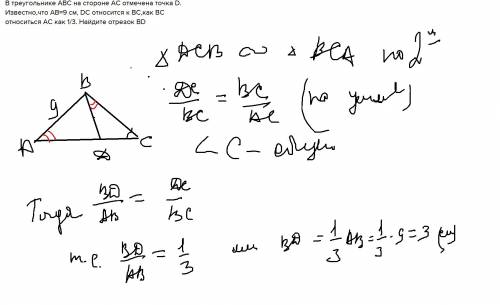 В треугольнике ABC на стороне AC отмечена точка D.
Известно,что AB=9 см, DC относится к BC,как BC
относиться AC как 1/3. Найдите отрезок BD
△ DCB ∾ △ BCA по 2ᵐ
B
9
A
D
C
DC/BC = BC/AC (по услов)
∠ C – общий
Тогда BD/AB = DC/BC
т.е. BD/AB = 1/3 или BD = 1/3 AB = 1/3 · 9 = 3 (см)